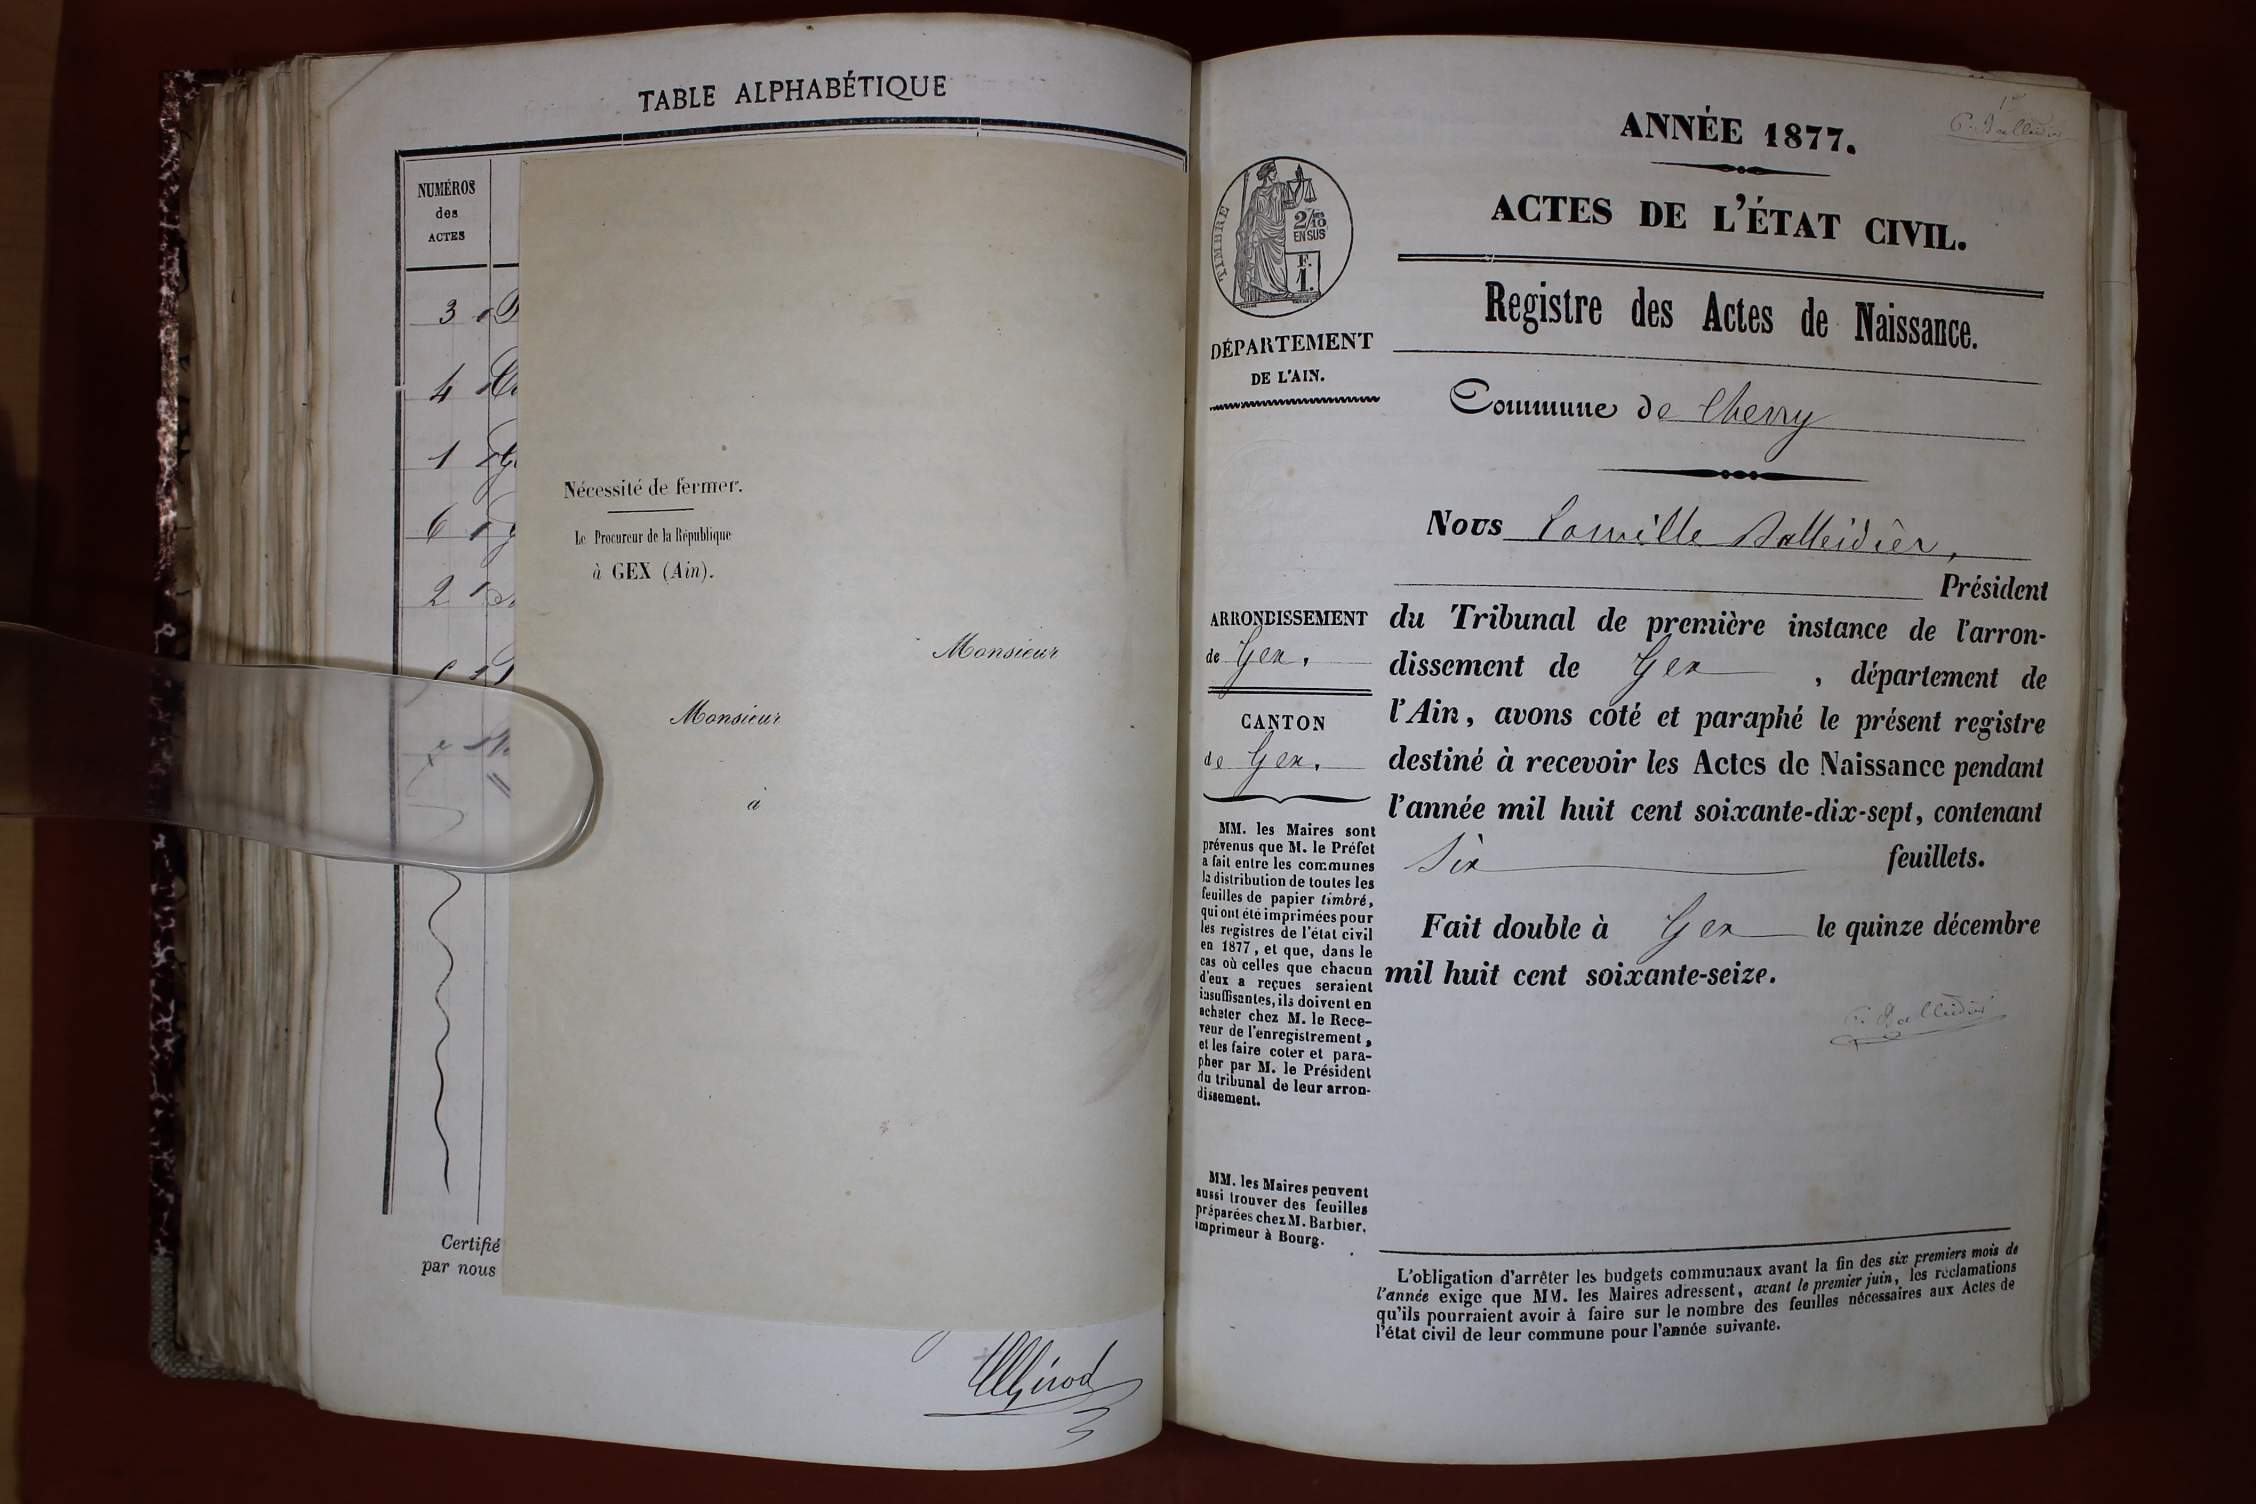 TABLE ALPHABÉTIQUE
NUMÉROS
des
ACTES
3
4
1
6
2
Nécessité de fermer.
Le Procureur de la République
à GEX (Ain).
Monsieur
Monsieur
à
Certifié
par nous
Girod
ANNÉE 1877.
ACTES DE L'ÉTAT CIVIL.
TIMBRE
2/10
EN SUS
F.
1.
DÉPARTEMENT
DE L'AIN.
Registre des Actes de Naissance.
Commune de Chevry
Nous Camille
Président
ARRONDISSEMENT
de Gex.
CANTON
de Gex.
du Tribunal de première instance de l'arron-
dissement de Gex, département de
l'Ain, avons coté et paraphé le présent registre
destiné à recevoir les Actes de Naissance pendant
l'année mil huit cent soixante-dix-sept, contenant
Six feuillets.
Fait double à Gex le quinze décembre
mil huit cent soixante-seize.
MM. les Maires sont
prévenus que M. le Préfet
a fait entre les communes
la distribution de toutes les
feuilles de papier timbré,
qui ont été imprimées pour
les registres de l'état civil
en 1877, et que, dans le
cas où celles que chacun
d'eux a reçues seraient
insuffisantes, ils doivent en
acheter chez M. le Rece-
veur de l'enregistrement,
et les faire coter et para-
pher par M. le Président
du tribunal de leur arron-
dissement.
MM. les Maires peuvent
aussi trouver des feuilles
préparées chez M. Barbier,
imprimeur à Bourg.
L'obligation d'arrêter les budgets communaux avant la fin des six premiers mois de
l'année exige que MM. les Maires adressent, avant le premier juin, les réclamations
qu'ils pourraient avoir à faire sur le nombre des feuilles nécessaires aux Actes de
l'état civil de leur commune pour l'année suivante.